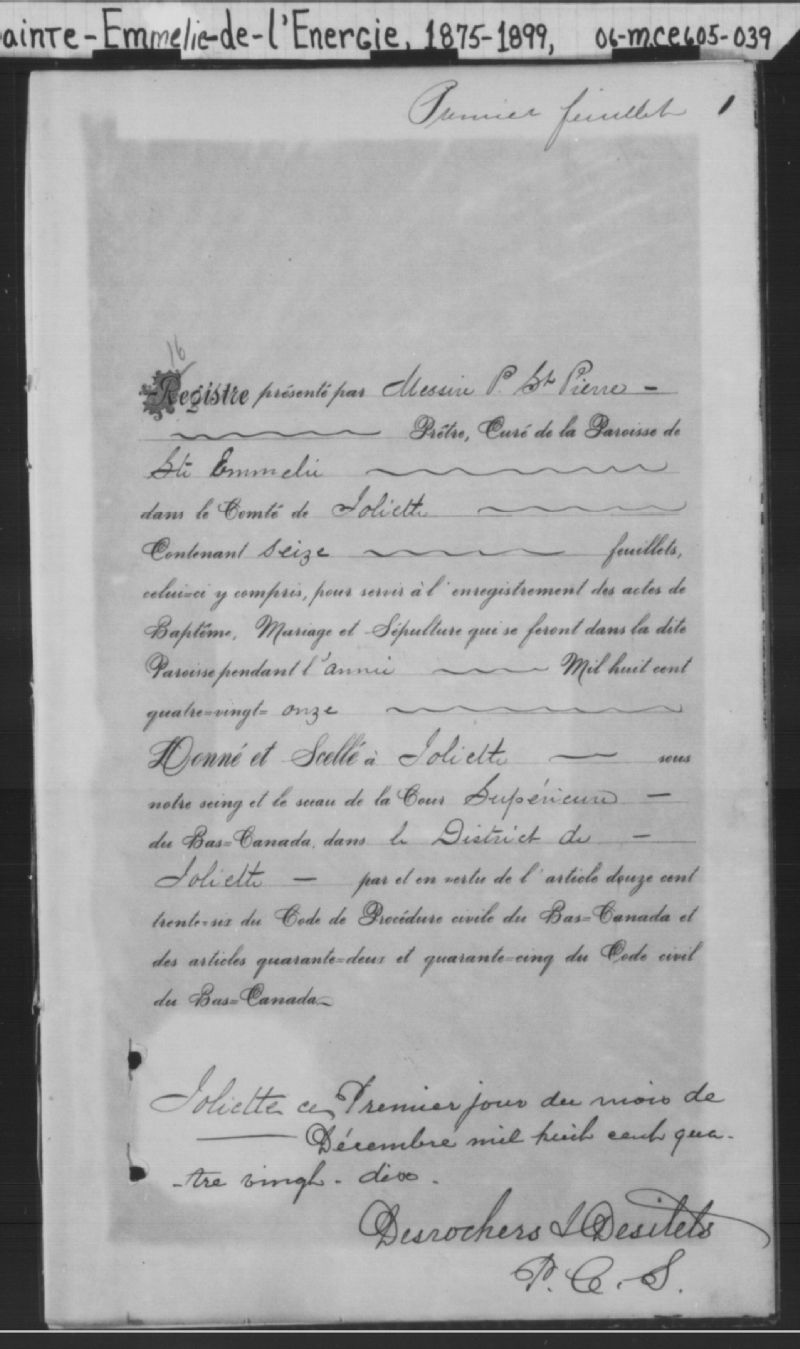 ainte-Emmelie-de-l'Energie, 1875-1899, 06-M.CE605-039
Premier feuillet 1
16
Registre présenté par Messire P. St Pierre -
Prêtre, Curé de la Paroisse de
Ste Emmelie
dans le Comté de Joliette
Contenant seize feuillets,
celui=ci y compris, pour servir à l'enregistrement des actes de
Baptême, Mariage et Sépulture qui se feront dans la dite
Paroisse pendant l'année Mil huit cent
quatre=vingt= onze
Donné et Scellé à Joliette — sous
notre seing et le sceau de la Cour Supérieure —
du Bas=Canada, dans le District de —
Joliette — par et en vertu de l'article douze cent
trente=six du Code de Procédure civile du Bas=Canada et
des articles quarante=deux et quarante=cinq du Code civil
du Bas=Canada.
Joliette ce Premier jour du mois de
Décembre mil huit cent qua-
-tre vingt-dix.
Desrochers & Desilets
P. C. S.